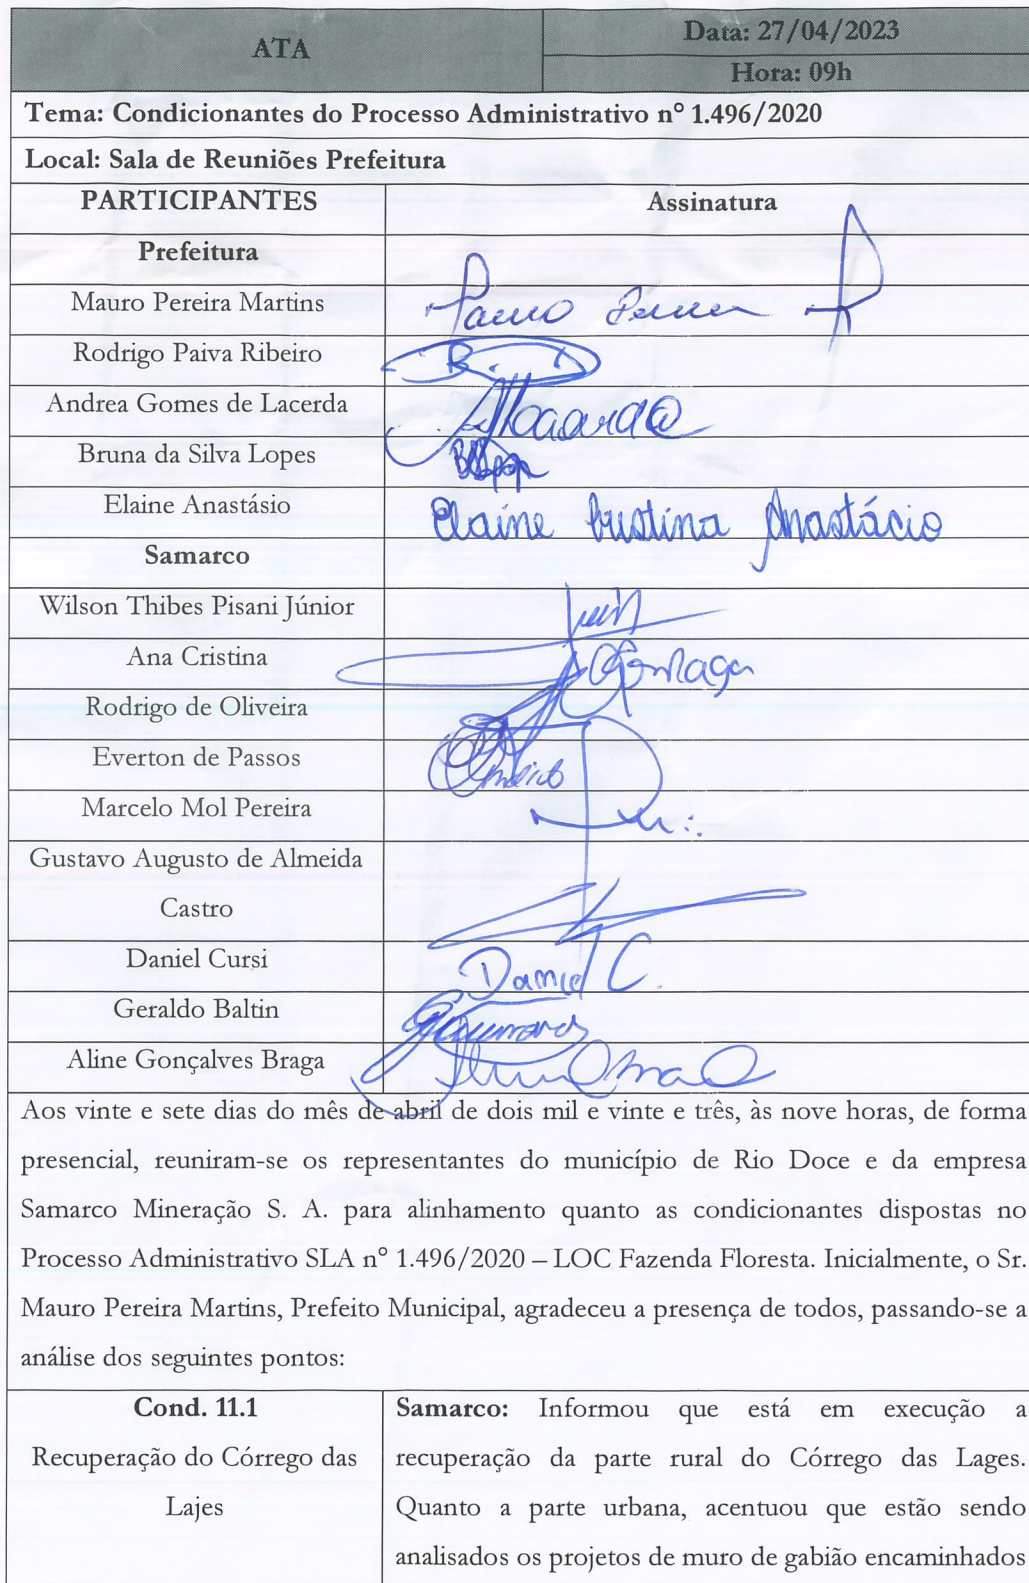 ATA
Data: 27/04/2023
Hora: 09h
Tema: Condicionantes do Processo Administrativo n° 1.496/2020
Local: Sala de Reuniões Prefeitura
PARTICIPANTES Assinatura
Prefeitura
Mauro Pereira Martins
Rodrigo Paiva Ribeiro
Andrea Gomes de Lacerda
Bruna da Silva Lopes
Elaine Anastásio Elaine Cristina Anastácio
Samarco
Wilson Thibes Pisani Júnior
Ana Cristina
Rodrigo de Oliveira
Everton de Passos
Marcelo Mol Pereira
Gustavo Augusto de Almeida
Castro
Daniel Cursi Daniel C.
Geraldo Baltin
Aline Gonçalves Braga
Aos vinte e sete dias do mês de abril de dois mil e vinte e três, às nove horas, de forma
presencial, reuniram-se os representantes do município de Rio Doce e da empresa
Samarco Mineração S. A. para alinhamento quanto as condicionantes dispostas no
Processo Administrativo SLA n° 1.496/2020 – LOC Fazenda Floresta. Inicialmente, o Sr.
Mauro Pereira Martins, Prefeito Municipal, agradeceu a presença de todos, passando-se a
análise dos seguintes pontos:
Cond. 11.1
Recuperação do Córrego das
Lajes
Samarco: Informou que está em execução a
recuperação da parte rural do Córrego das Lages.
Quanto a parte urbana, acentuou que estão sendo
analisados os projetos de muro de gabião encaminhados